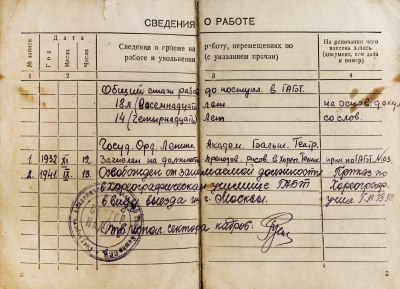 СВЕДЕНИЯ О РАБОТЕ
№ записи
Дата
Год
Месяц
Число
Сведения о приеме на работу, перемещениях по работе и увольнении (с указанием причин)
На основании чего внесена запись (документ, его дата и номер)
1 2 3 4
Общий стаж работ до поступл. в ГАБТ.
18 л (Восемнадцать) лет на основ. докум
14 (Четырнадцать) лет со слов.
Госуд. Орд. Ленина Академ. Больш. Театр.
1 1932 XI 12. Зачислен на должность препод. рисов. в Хореогр.
2 1941 IX 13. Освобожден от занимаемой должности Приказ по
в хореографическом училище ГАБТ Хореограф.
в виду выезда из г. Москвы. учил. Г.А.Б.Т.
Отв. исполн. сектора кадров.